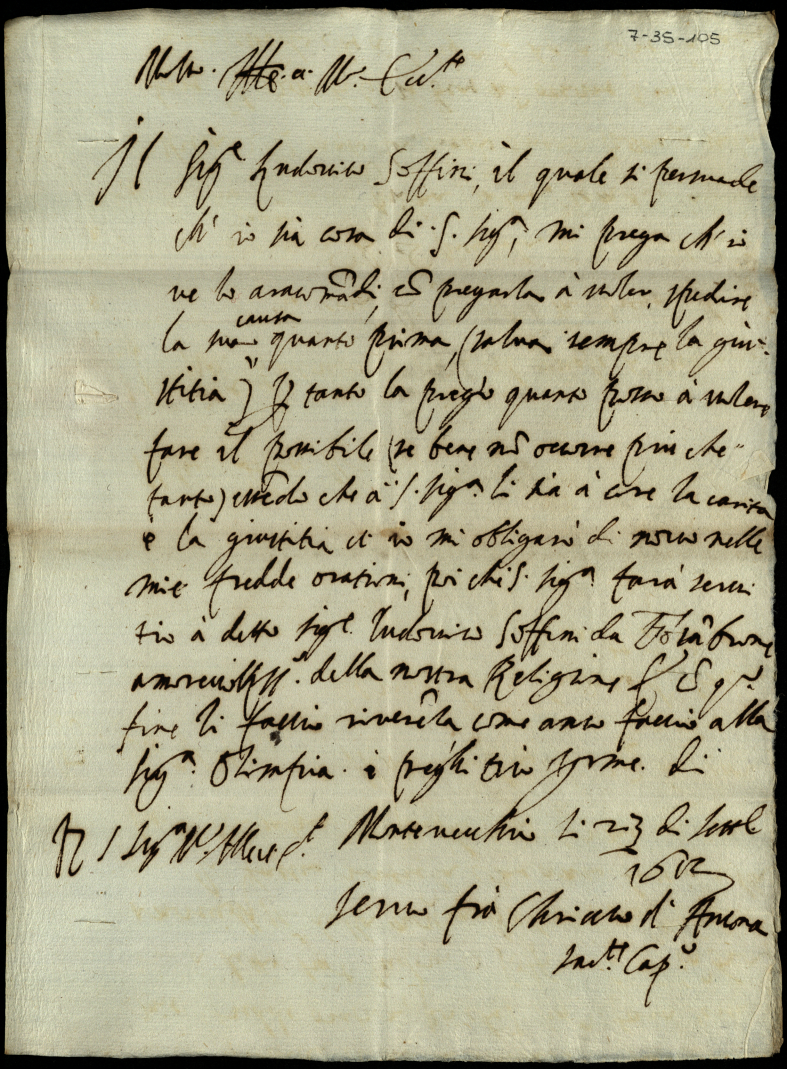 7-35-105
Molto Ill.e et M.to Ecc.te
Il Sig.e Ludovico Soffini, il quale si persuade
ch' io sia cosa di S. Sig.a, mi prega ch' io
ve lo aracomādi, cō pregarla à voler spedire
la sua causa quanto prima, (salva sempre la giu-
stitia) p tanto la prego quanto posso à volere
fare il possibile (se bene nō occorre piu che
tanto) essēdo che à S. Sig.a li sia à core la carita
e la giustitia et io mi obligarò di novo nelle
mie fredde orationi, poi che S. Sig.a farà servi
tio à detto Sig.e Ludovico Soffini da
amorevoliss.o della nostra Religione
fine li faccio riverēla come anco faccio alla
Sig.a Olimpia. e preghi Dio p me. di
D S Sig.a M.to Ill.e et Montevecchio li 23 di
1602
servo fra di Ancona
Cap.o